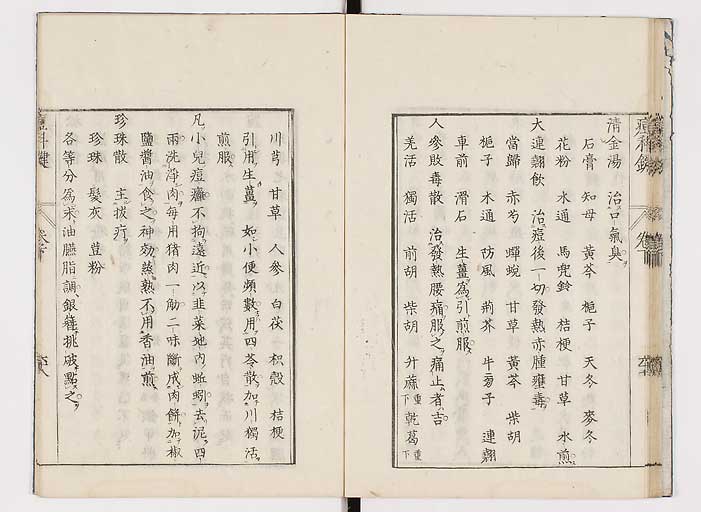 清金湯　治口氣臭
石膏　知母　黃芩　梔子　天冬　麥冬
花粉　木通　馬兜鈴　桔梗　甘草　水煎
大連翹飲　治痘後一切發熱赤腫癰毒
當歸　赤芍　蟬蛻　甘草　黃芩　柴胡
梔子　木通　防風　荊芥　牛蒡子　連翹
車前　滑石　生薑為引煎服
人參敗毒散　治發熱腰痛服之痛止者吉
羌活　獨活　前胡　柴胡　升蔴重下　乾葛重下
川芎　甘草　人參　白茯　枳殼　桔梗
引用生薑　如小便頻數用四苓散加川獨活
煎服
凡小兒痘癰不拘遠近以韭菜地內蚯蚓去泥四
兩洗淨肉每用猪肉一觔二味斷成肉餅加椒
鹽醬油食之神効蒸熟不用香油煎
珍珠散　主拔疔
珍珠　髮灰　荳粉
各等分為末油臙脂調銀簪挑破點之